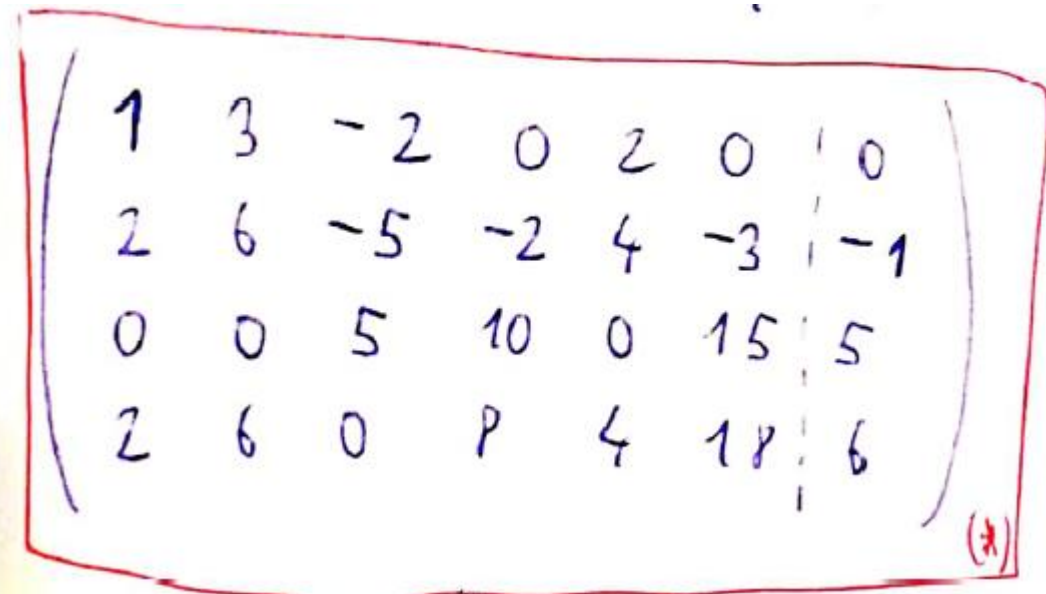 1 3 -2 0 2 0 0
2 6 -5 -2 4 -3 -1
0 0 5 10 0 15 5
2 6 0 8 4 18 6
(*)